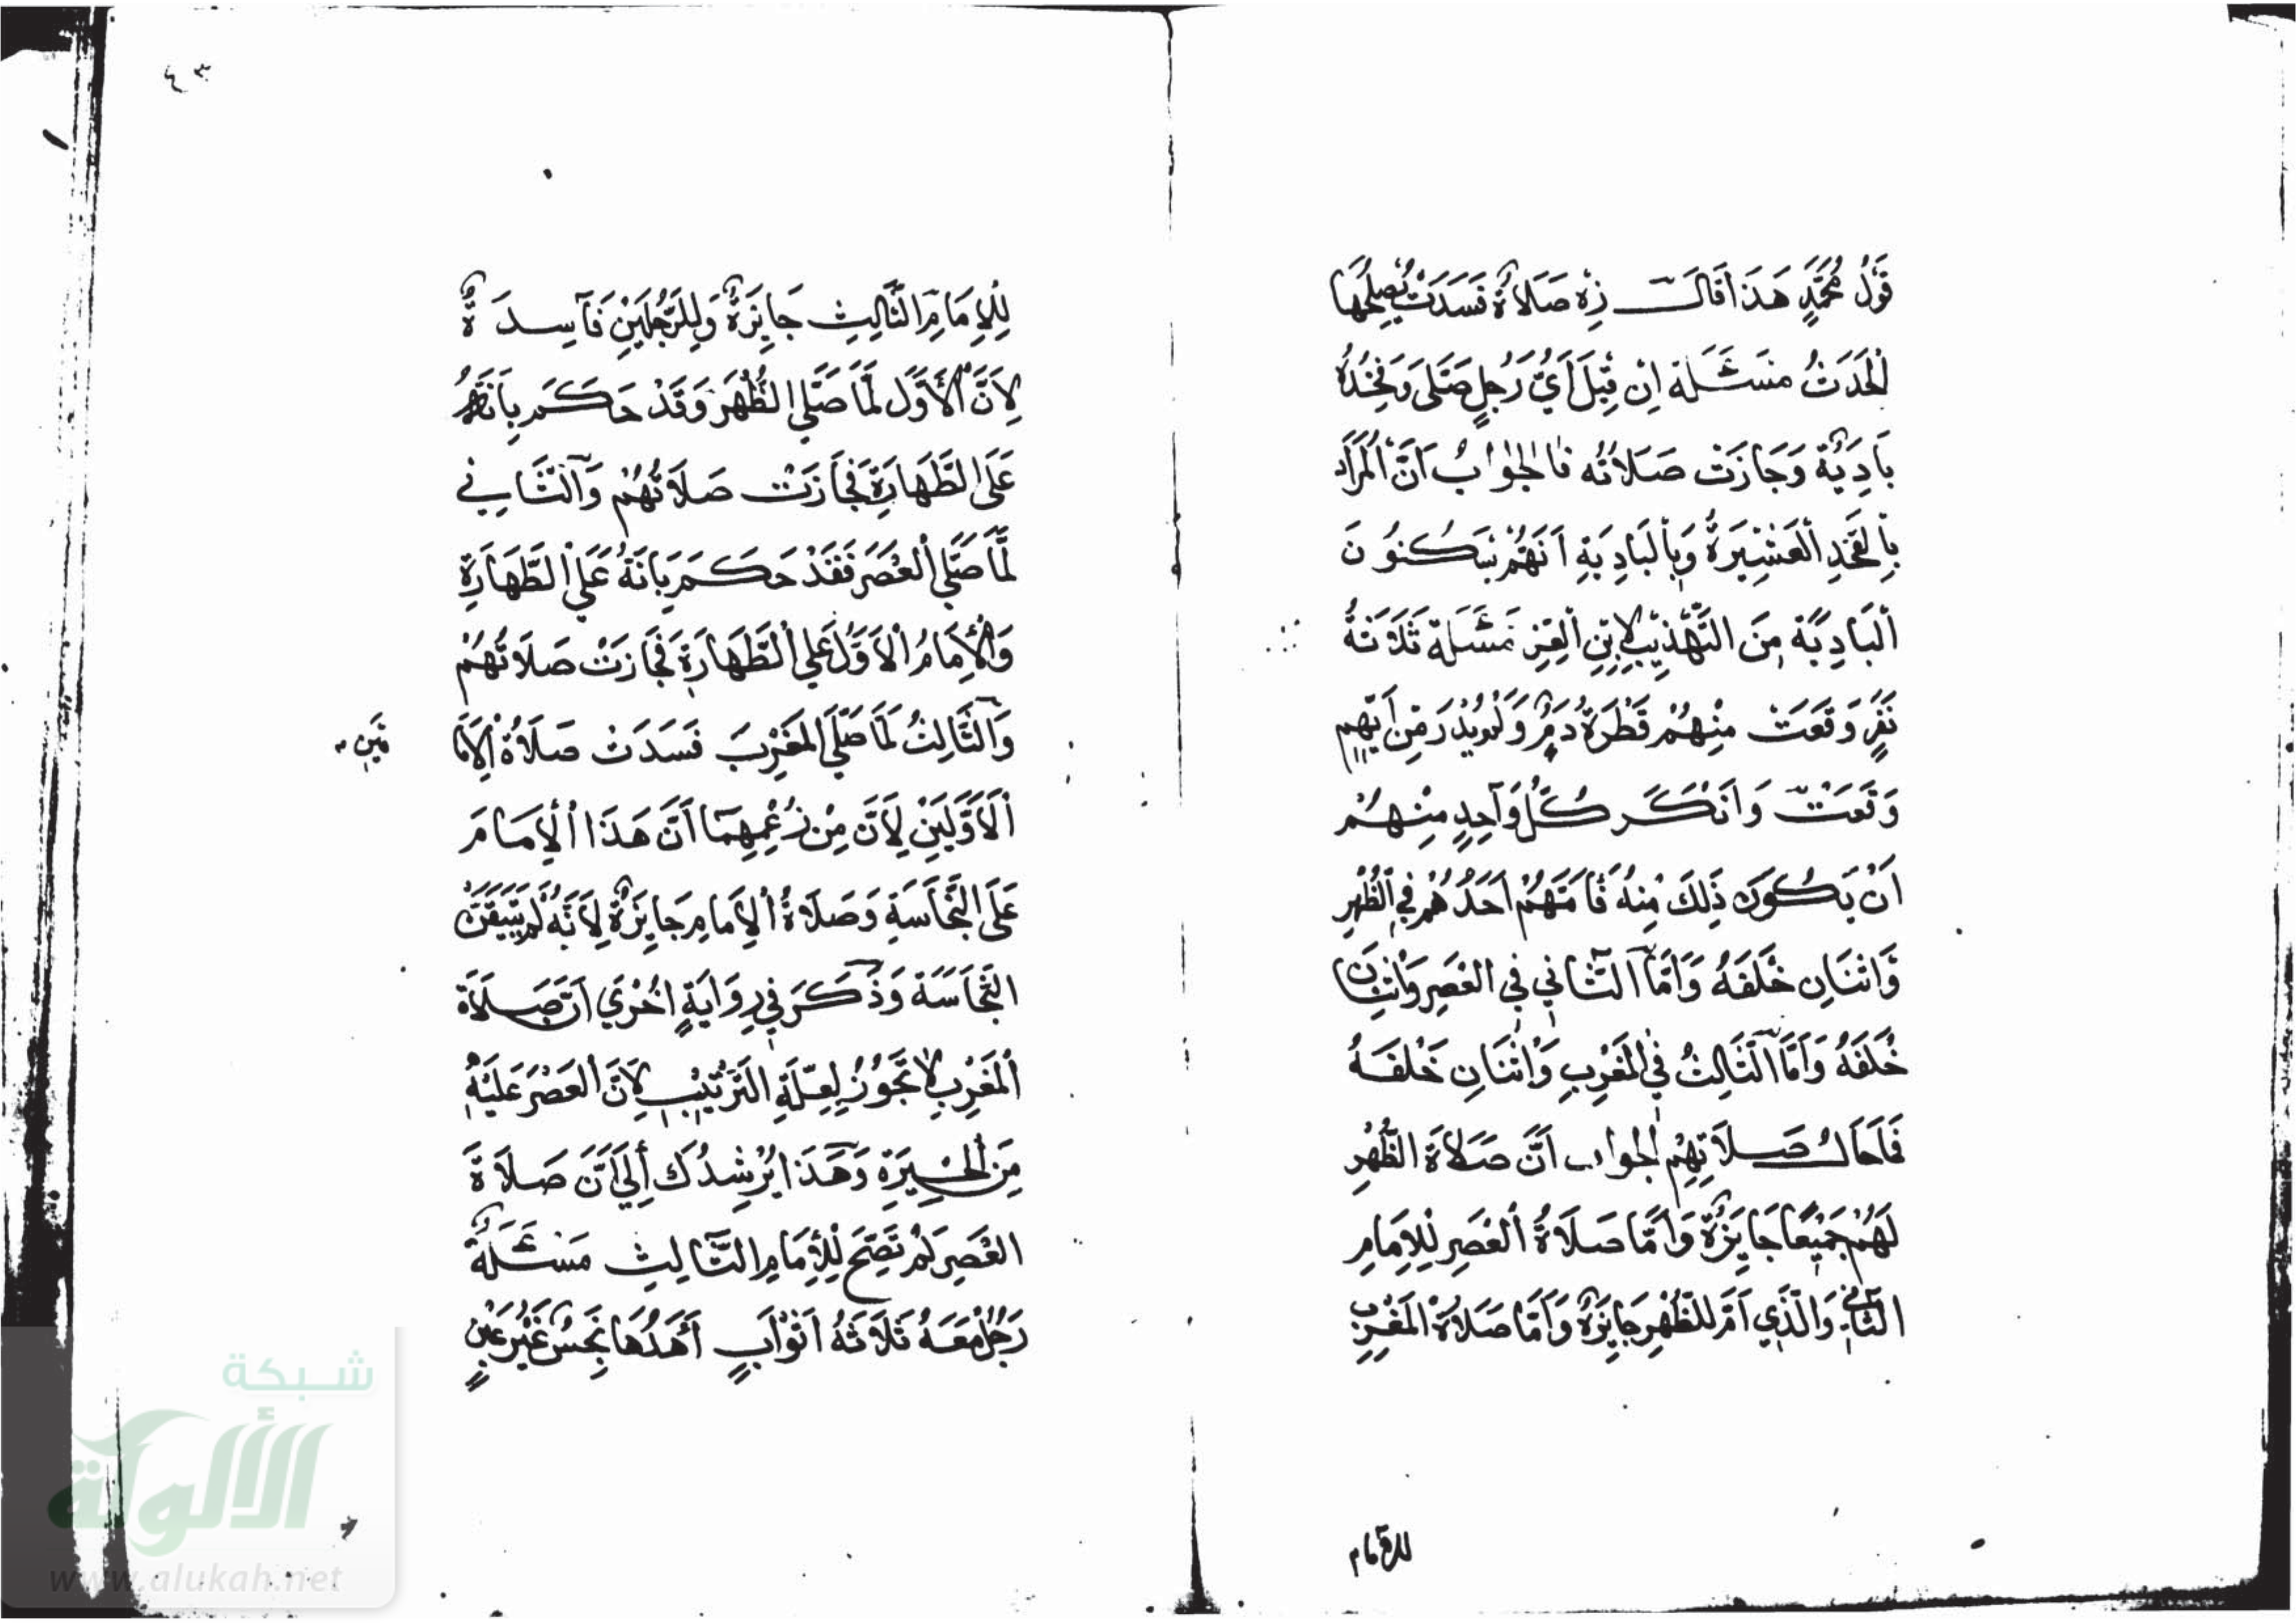 قَوْلُ مُحَمَّدٍ هَذَا قَالَ زِه صَلَاةٌ فَسَدَتْ يُصْلِحُهَا
الْحَدَثُ مَسْئَلَة اِن قِيْلَ أَيُّ رَجُلٍ صَلَّى وَفَخِذُهُ
بَادِيَةٌ وَجَازَتْ صَلَاتُه فَالْجَوَابُ اَنَّ الْمُرَادَ
بِالْفَخِذِ الْعَشِيْرَةُ وَبِالْبَادِيَةِ اَنَهُّمْ يَسْكُنُونَ
الْبَادِيَة مِنَ التَّهْذِيْبِ لِابْنِ الْعِزِّ مَسْئَلَة ثَلَاثَةُ
نَفَرٍ وَقَعَتْ مِنْهُمْ قَطْرَةُ دَمٍ وَلَمْ يُدْرَ مِنْ اَيِّهِم
وَقَعَتْ وَاَنْكَرَ كُلُّ وَاحِدٍ مِنْهُمْ
اَنْ يَكُوْنَ ذَلِكَ مِنْهُ فَاَمَّهُمْ اَحَدُهُمْ فِي الظُّهْرِ
وَاثْنَانِ خَلْفَهُ وَاَمَّا الثَّانِي فِي الْعَصْرِ وَاثْنَانِ
خَلْفَهُ وَاَمَّا الثَّالِثُ فِي الْمَغْرِبِ وَاثْنَانِ خَلْفَهُ
فَمَا حَالُ صَلَاتِهِمْ الجواب اَنَّ صَلَاةَ الظُّهْرِ
لَهُمْ جَمِيْعًا جَايِزَةٌ وَاَمَّا صَلَاةُ الْعَصْرِ لِلْاِمَامِ
الثَّانِي وَالَّذِي اَمَّ لِلظُّهْرِ جَايِزَةٌ وَاَمَّا صَلَاةُ الْمَغْرِبِ
للامام
٤٣
لِلْاِمَامِ الثَّالِثِ جَايِزَةٌ وَلِلرَّجُلَيْنِ فَاسِدَةٌ
لِاَنَّ الْاَوَّلَ لَمَّا صَلَّى الظُّهْرَ وَقَدْ حَكَمَ بِاَنَّهُمْ
عَلَى الطَّهَارَةِ فَجَازَتْ صَلَاتُهُمْ وَالثَّانِي
لَمَّا صَلَّى الْعَصْرَ فَقَدْ حَكَمَ بِاَنَّهُ عَلَى الطَّهَارَةِ
وَالْاِمَامُ الْاَوَّلُ عَلَى الطَّهَارَةِ فَجَازَتْ صَلَاتُهُمْ
وَالثَّالِثُ لَمَّا صَلَّى الْمَغْرِبَ فَسَدَتْ صَلَاةُ الْاِمَا
مَيْنِ
الْاَوَّلَيْنِ لِاَنَّ مِنْ زُعْمِهِمَا اَنَّ هَذَا الْاِمَامَ
عَلَى النَّجَاسَةِ وَصَلَاةُ الْاِمَامِ جَايِزَةٌ لِاَنَّهُ لَمْ يَتَيَقَّنْ
النَّجَاسَةَ وَذَكَرَ فِي رِوَايَةٍ اُخْرَى اَنَّ صَلَاةَ
الْمَغْرِبِ لَا تَجُوْزُ لِعِلَّةِ التَّرْتِيْبِ لِاَنَّ الْعَصْرَ عَلَيْهِ
مِنَ الْحَسِيْرَةِ وَهَذَا يُرْشِدُكَ اِلَى اَنَّ صَلَاةَ
الْعَصْرِ لَمْ تَصِحَّ لِلْاِمَامِ الثَّالِثِ مَسْئَلَةٌ
رَجُلٌ مَعَهُ ثَلَاثَةُ اَثْوَابٍ اَحَدُهَا نَجِسٌ غَيْرُ عَيْنٍ
شبكة
الألوكة
www.alukah.net